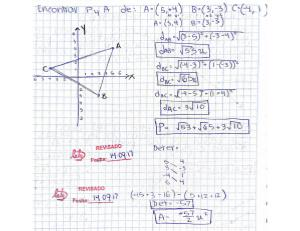 Encontrar P y A de: A=(5,4) B=(3,-3) C(-4,1)
Y
A
C
X
B
dAB=√(3-5)²+(-3-4)²
dAB=√53 u
dBC=√(-4-3)²+(1-(-3))²
dBC=√65 u
dAC=√(-4-5)²+(1-4)²
dAC=3√10
P=√53+√65+3√10
REVISADO
Fecha: 14.09.17
Deter=
5 4
3 -3
-4 1
5 4
REVISADO
Fecha: 14.09.17
(-15+3-16)-(5+12+12)
Det=-57
A=57/2 u²